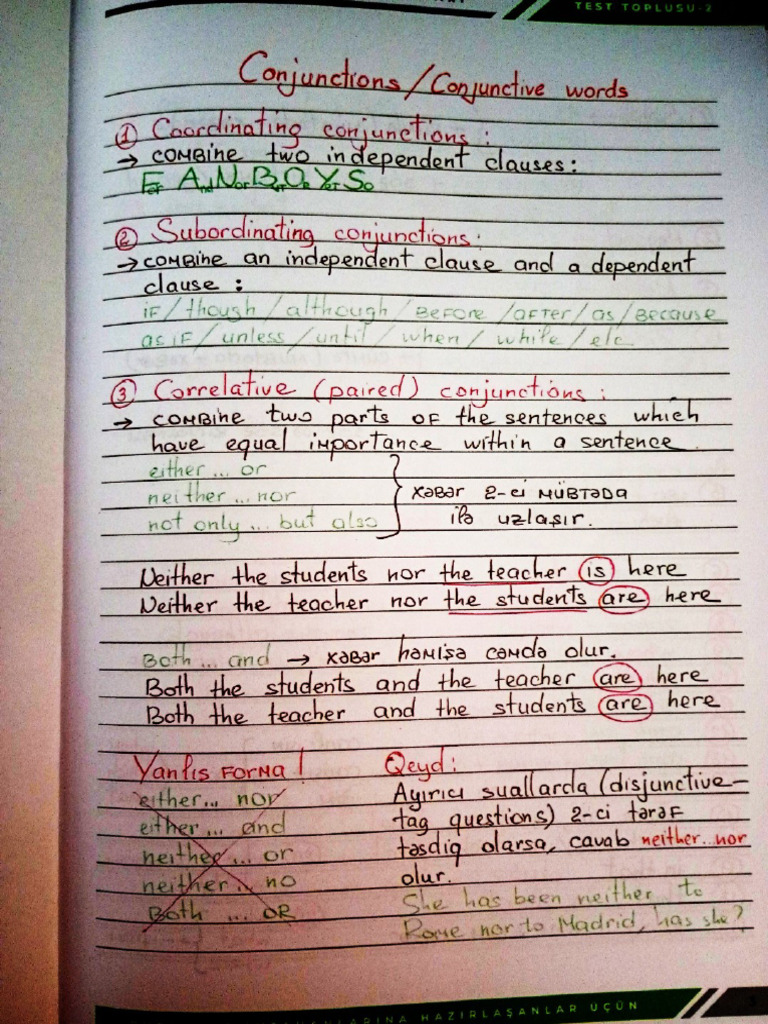 TEST TOPLUSU-2
Conjunctions / Conjunctive words
① Coordinating conjunctions :
→ combine two independent clauses :
For And Nor But Or Yet So
② Subordinating conjunctions :
→ combine an independent clause and a dependent
clause :
if / though / although / before / after / as / because
as if / unless / until / when / while / etc
③ Correlative (paired) conjunctions :
→ combine two parts of the sentences which
have equal importance within a sentence.
either ... or
neither ... nor
not only ... but also
xəbər 2-ci mübtəda
ilə uzlaşır.
Neither the students nor the teacher is here
Neither the teacher nor the students are here
Both ... and → xəbər həmişə cəmdə olur.
Both the students and the teacher are here
Both the teacher and the students are here
Yanlış forma !
either ... nor
either ... and
neither ... or
neither ... no
Both ... or
Qeyd :
Ayırıcı suallarda (disjunctive-
tag questions) 2-ci tərəf
təsdiq olarsa, cavab neither...nor
olur.
She has been neither to
Rome nor to Madrid, has she?
HAZIRLAŞANLAR ÜÇÜN